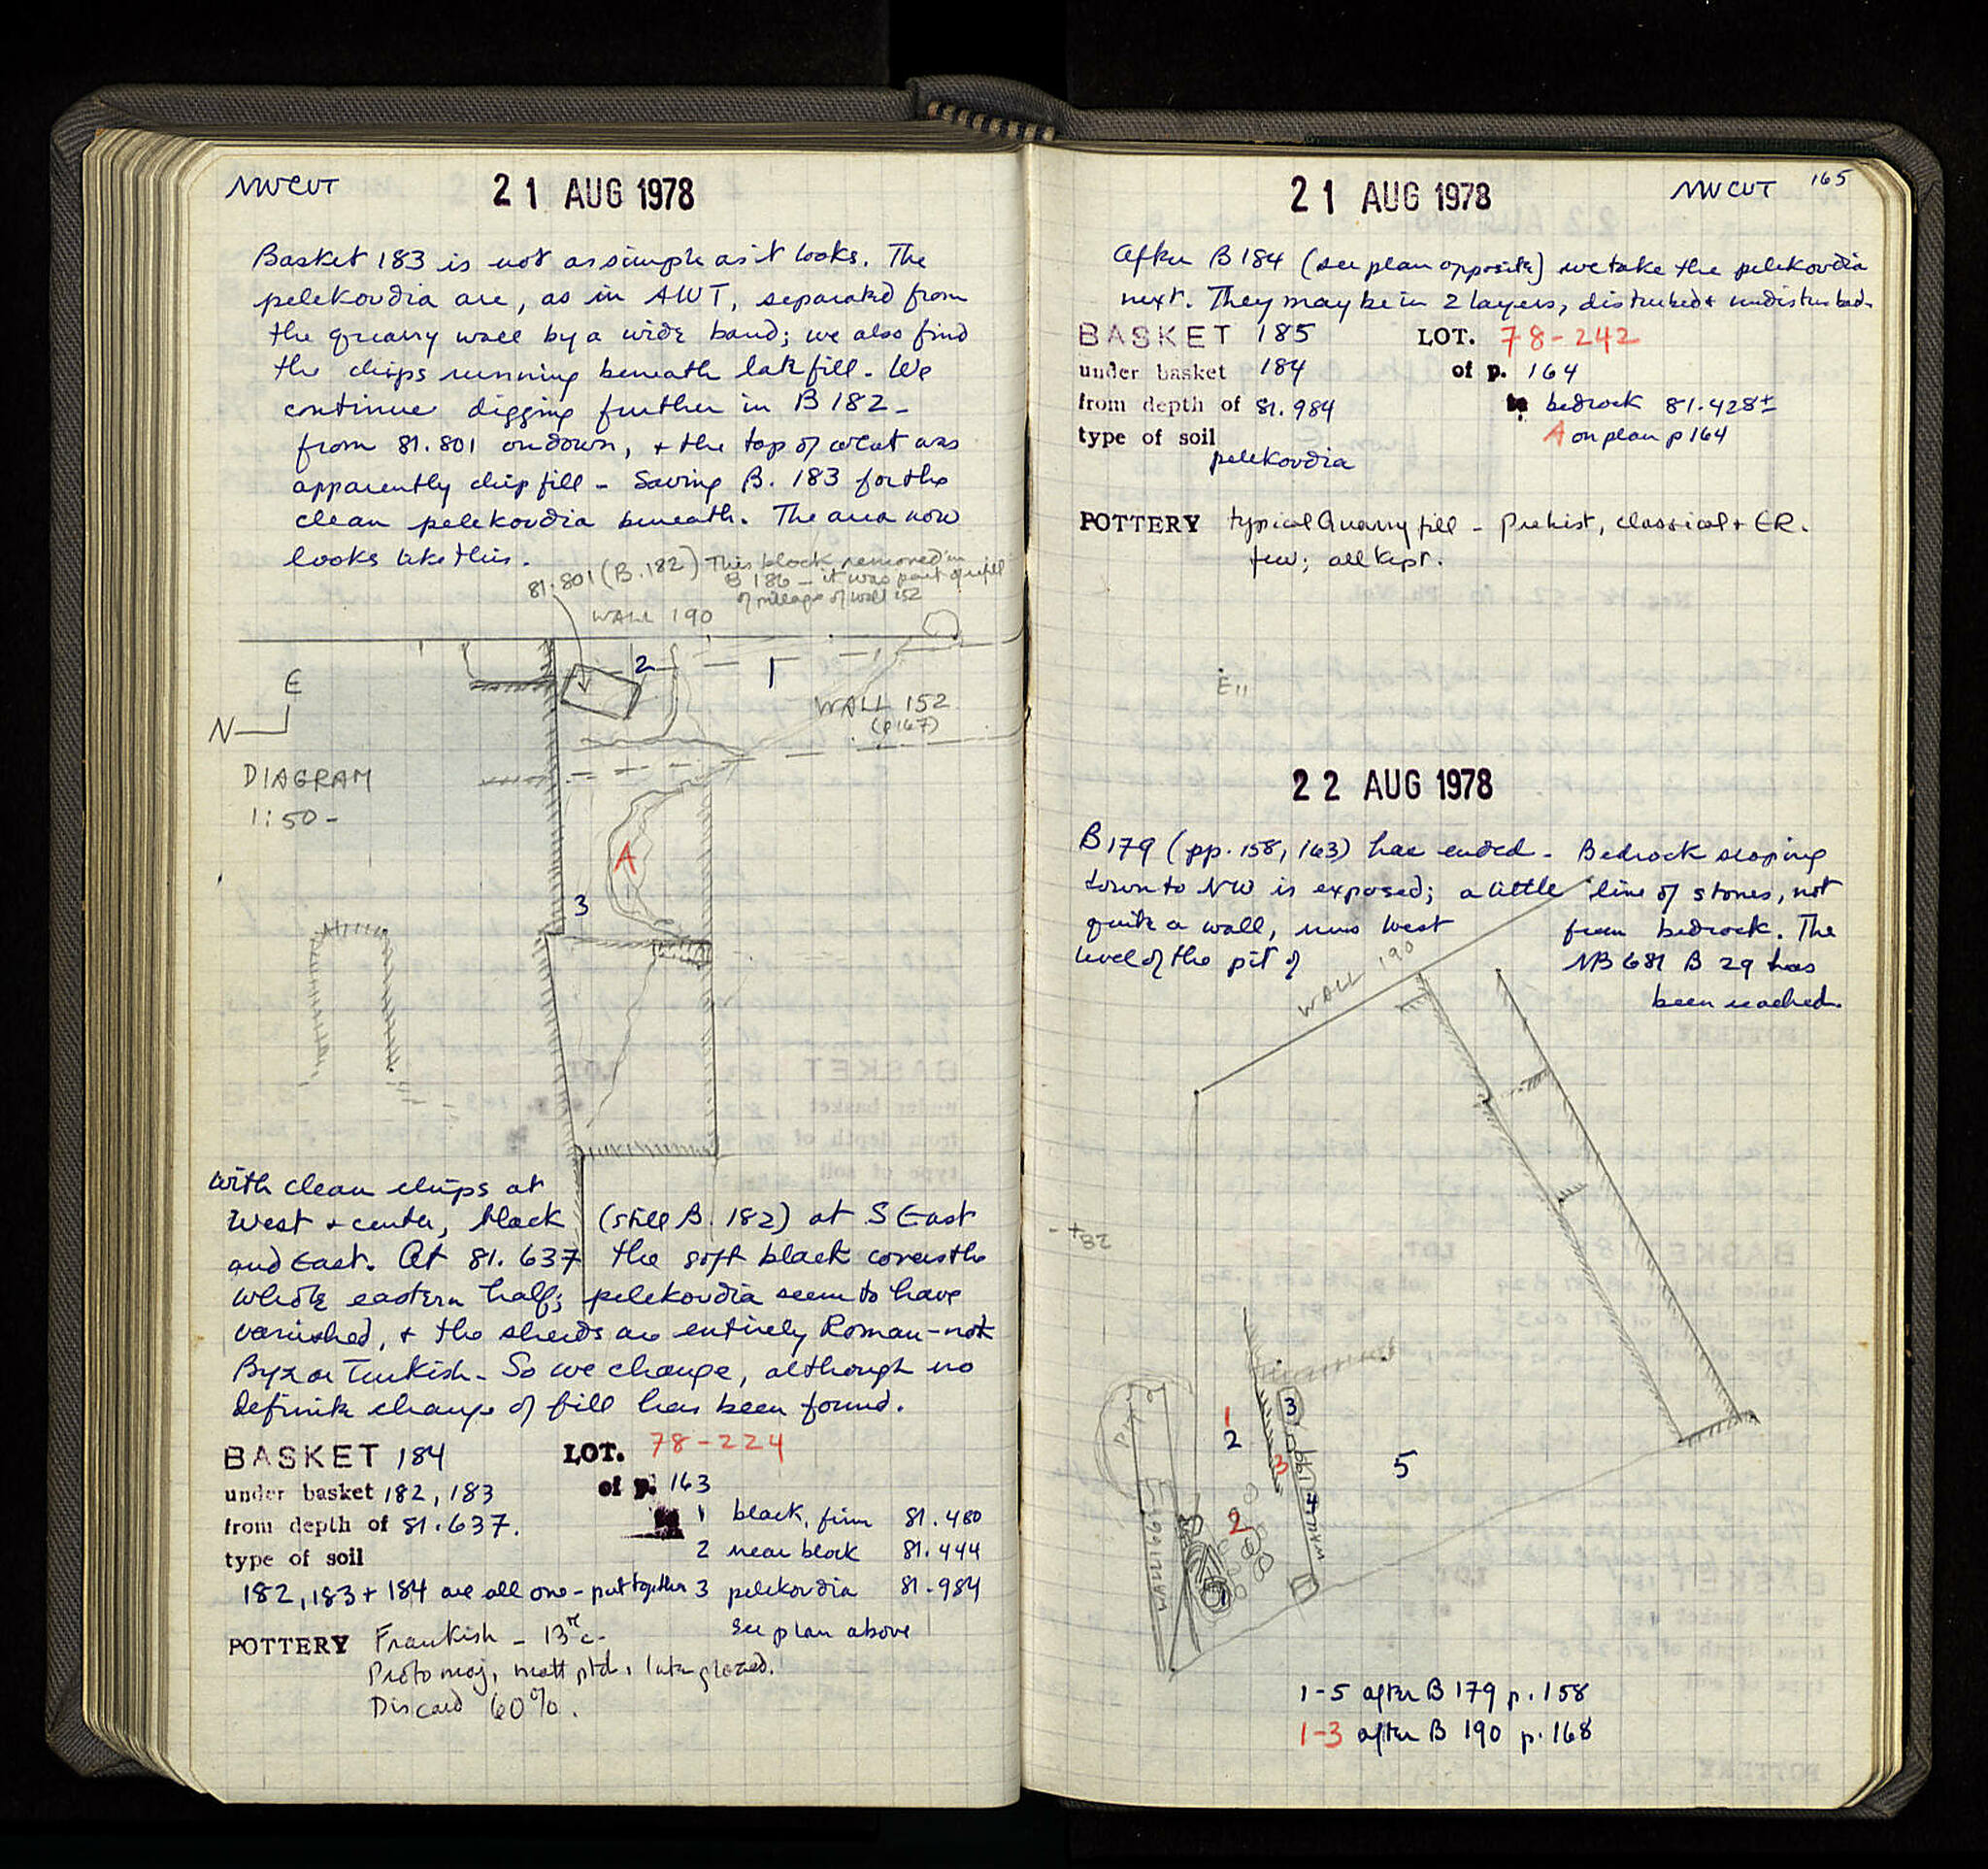 NWCUT
21 AUG 1978
Basket 183 is not as simple as it looks. The
pelekoudia are, as in AWT, separated from
the quarry wall by a wide band; we also find
the chips running beneath late fill - We
continue digging further in B 182 -
from 81.801 on down, + the top of what was
apparently chip fill - Saving B. 183 for the
clean pelekoudia beneath. The area now
looks like this.
81.801 (B.182)
This block removed in
B 186 - it was part of refill
of pillage of wall 152
WALL 190
2
1
E
N
WALL 152
(p 167)
DIAGRAM
1:50 -
A
3
with clean chips at
West + center, black (still B. 182) at S East
and East. At 81.637 the soft black covers the
whole eastern half; pelekoudia seem to have
vanished, + the sherds are entirely Roman - not
Byz or Turkish - So we change, although no
definite change of fill has been found.
BASKET 184 LOT. 78-224
under basket 182, 183 of p. 163
from depth of 81.637. 1 black, firm 81.480
type of soil 2 near block 81.444
182, 183 + 184 are all one - put together 3 pelekoudia 81.984
see plan above
POTTERY Frankish - 13th c.
Proto maj, matt ptd, late glazed.
Discard 60%.
21 AUG 1978
NWCUT 165
After B 184 (see plan opposite) we take the pelekoudia
next. They may be in 2 layers, disturbed + undisturbed.
BASKET 185 LOT. 78-242
under basket 184 of p. 164
from depth of 81.984 to bedrock 81.428±
type of soil A on plan p 164
pelekoudia
POTTERY typical Quarry fill - Prehist, classical + ER.
few; all kept.
22 AUG 1978
B179 (pp. 158, 163) has ended - Bedrock sloping
down to NW is exposed; a little line of stones, not
quite a wall, runs West from bedrock. The
level of the pit of NB 681 B 29 has
been reached.
WALL 190
3
1
2
3
5
WALL 199
4
2
WALL 199
1
1-5 after B 179 p. 158
1-3 after B 190 p. 168